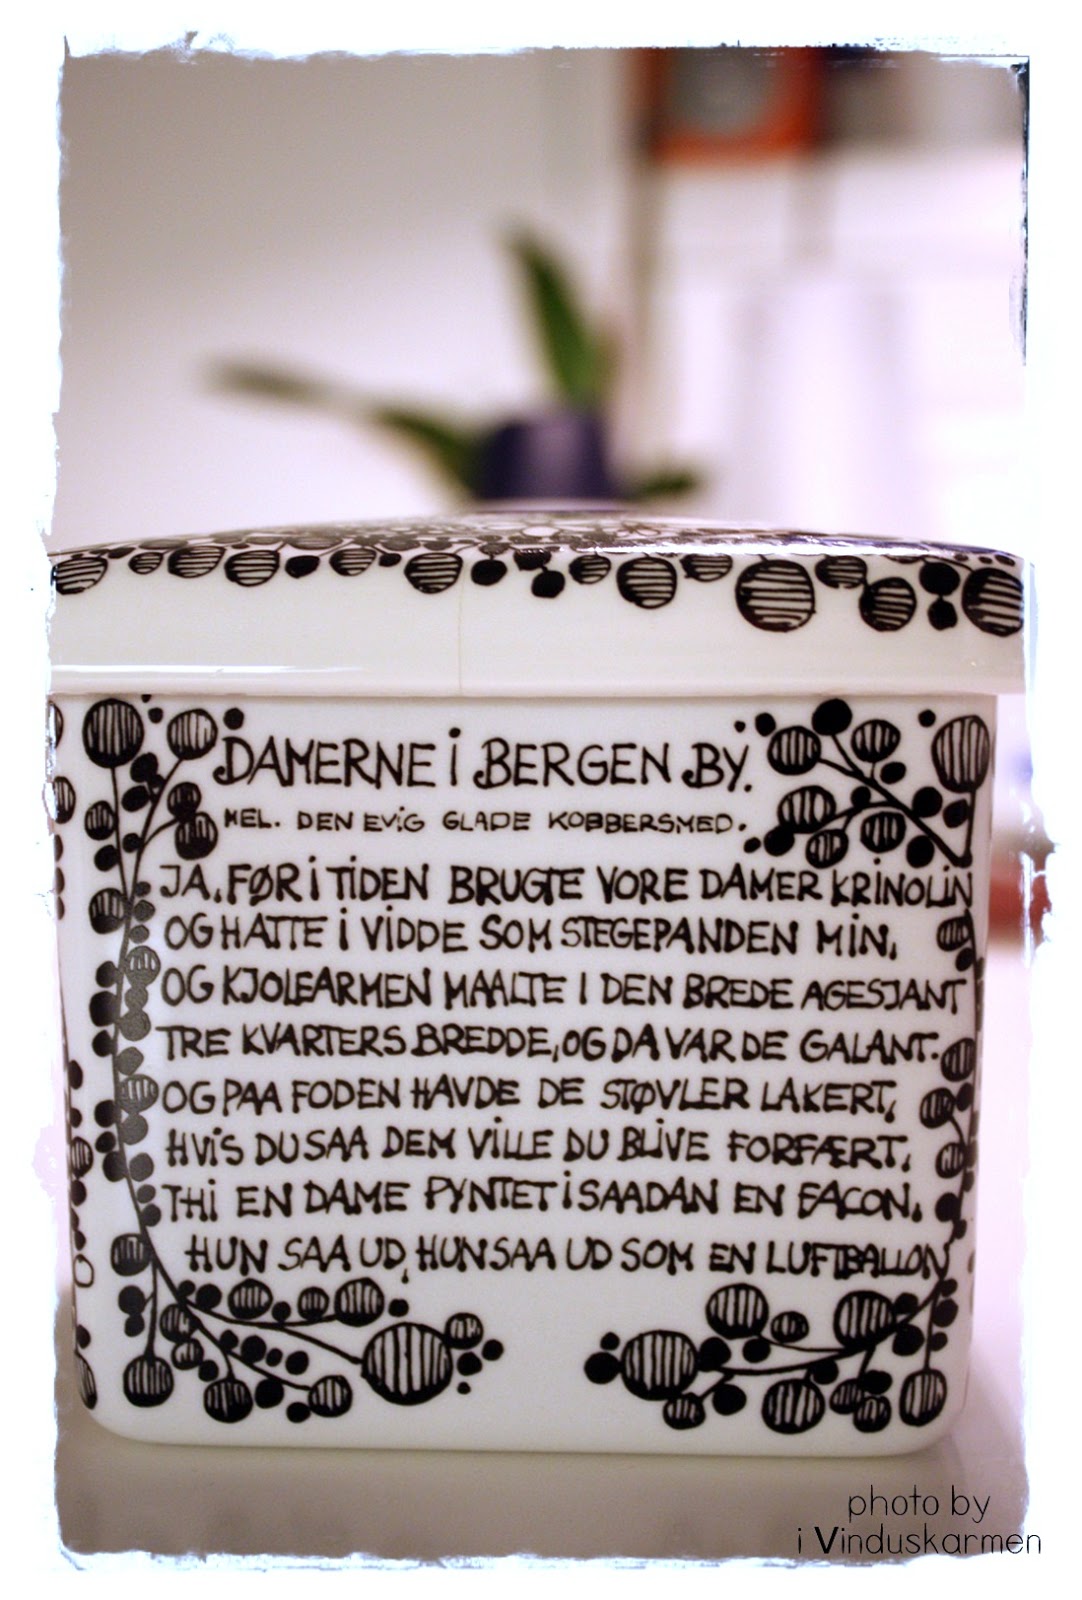 DAMERNE I BERGEN BY.
MEL. DEN EVIG GLADE KOBBERSMED.
JA, FØR I TIDEN BRUGTE VORE DAMER KRINOLIN
OG HATTE I VIDDE SOM STEGEPANDEN MIN,
OG KJOLEARMEN MAALTE I DEN BREDE AGESJANT
TRE KVARTERS BREDDE, OG DA VAR DE GALANT.
OG PAA FODEN HAVDE DE STØVLER LAKERT,
HVIS DU SAA DEM VILLE DU BLIVE FORFÆRT,
THI EN DAME PYNTET I SAADAN EN FACON,
HUN SAA UD, HUN SAA UD SOM EN LUFTBALLON
photo by
i Vinduskarmen